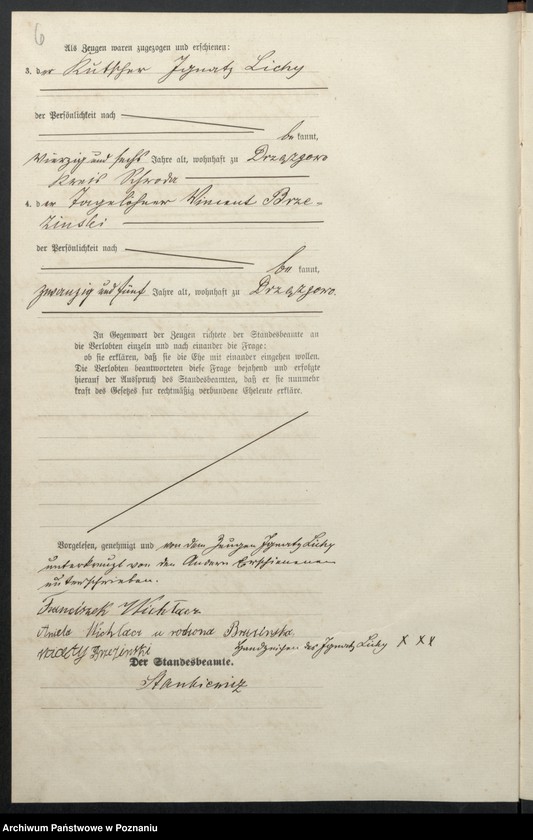 6
Als Zeugen waren zugezogen und erschienen:
3. der Kutscher Ignatz Lichy
der Persönlichkeit nach
be kannt,
vierzig und sechs Jahre alt, wohnhaft zu Drzązgowo
Kreis Schroda
4. der Tagelöhner Vincent Brze-
zinski
der Persönlichkeit nach
be kannt,
zwanzig und fünf Jahre alt, wohnhaft zu Drzązgowo.
In Gegenwart der Zeugen richtete der Standesbeamte an
die Verlobten einzeln und nach einander die Frage:
ob sie erklären, daß sie die Ehe mit einander eingehen wollen.
Die Verlobten beantworteten diese Frage bejahend und erfolgte
hierauf der Ausspruch des Standesbeamten, daß er sie nunmehr
kraft des Gesetzes für rechtmäßig verbundene Eheleute erkläre.
Vorgelesen, genehmigt und von dem Zeugen Ignatz Lichy
unterkreuzt von den Andern Erschienenen
unterschrieben.
Franciszek Wichłacz
Wichłacz u rodzona Brzesinska
Brzezinski Handzeichen des Ignatz Lichy X X X
Der Standesbeamte.
Stankiewicz
Archiwum Państwowe w Poznaniu